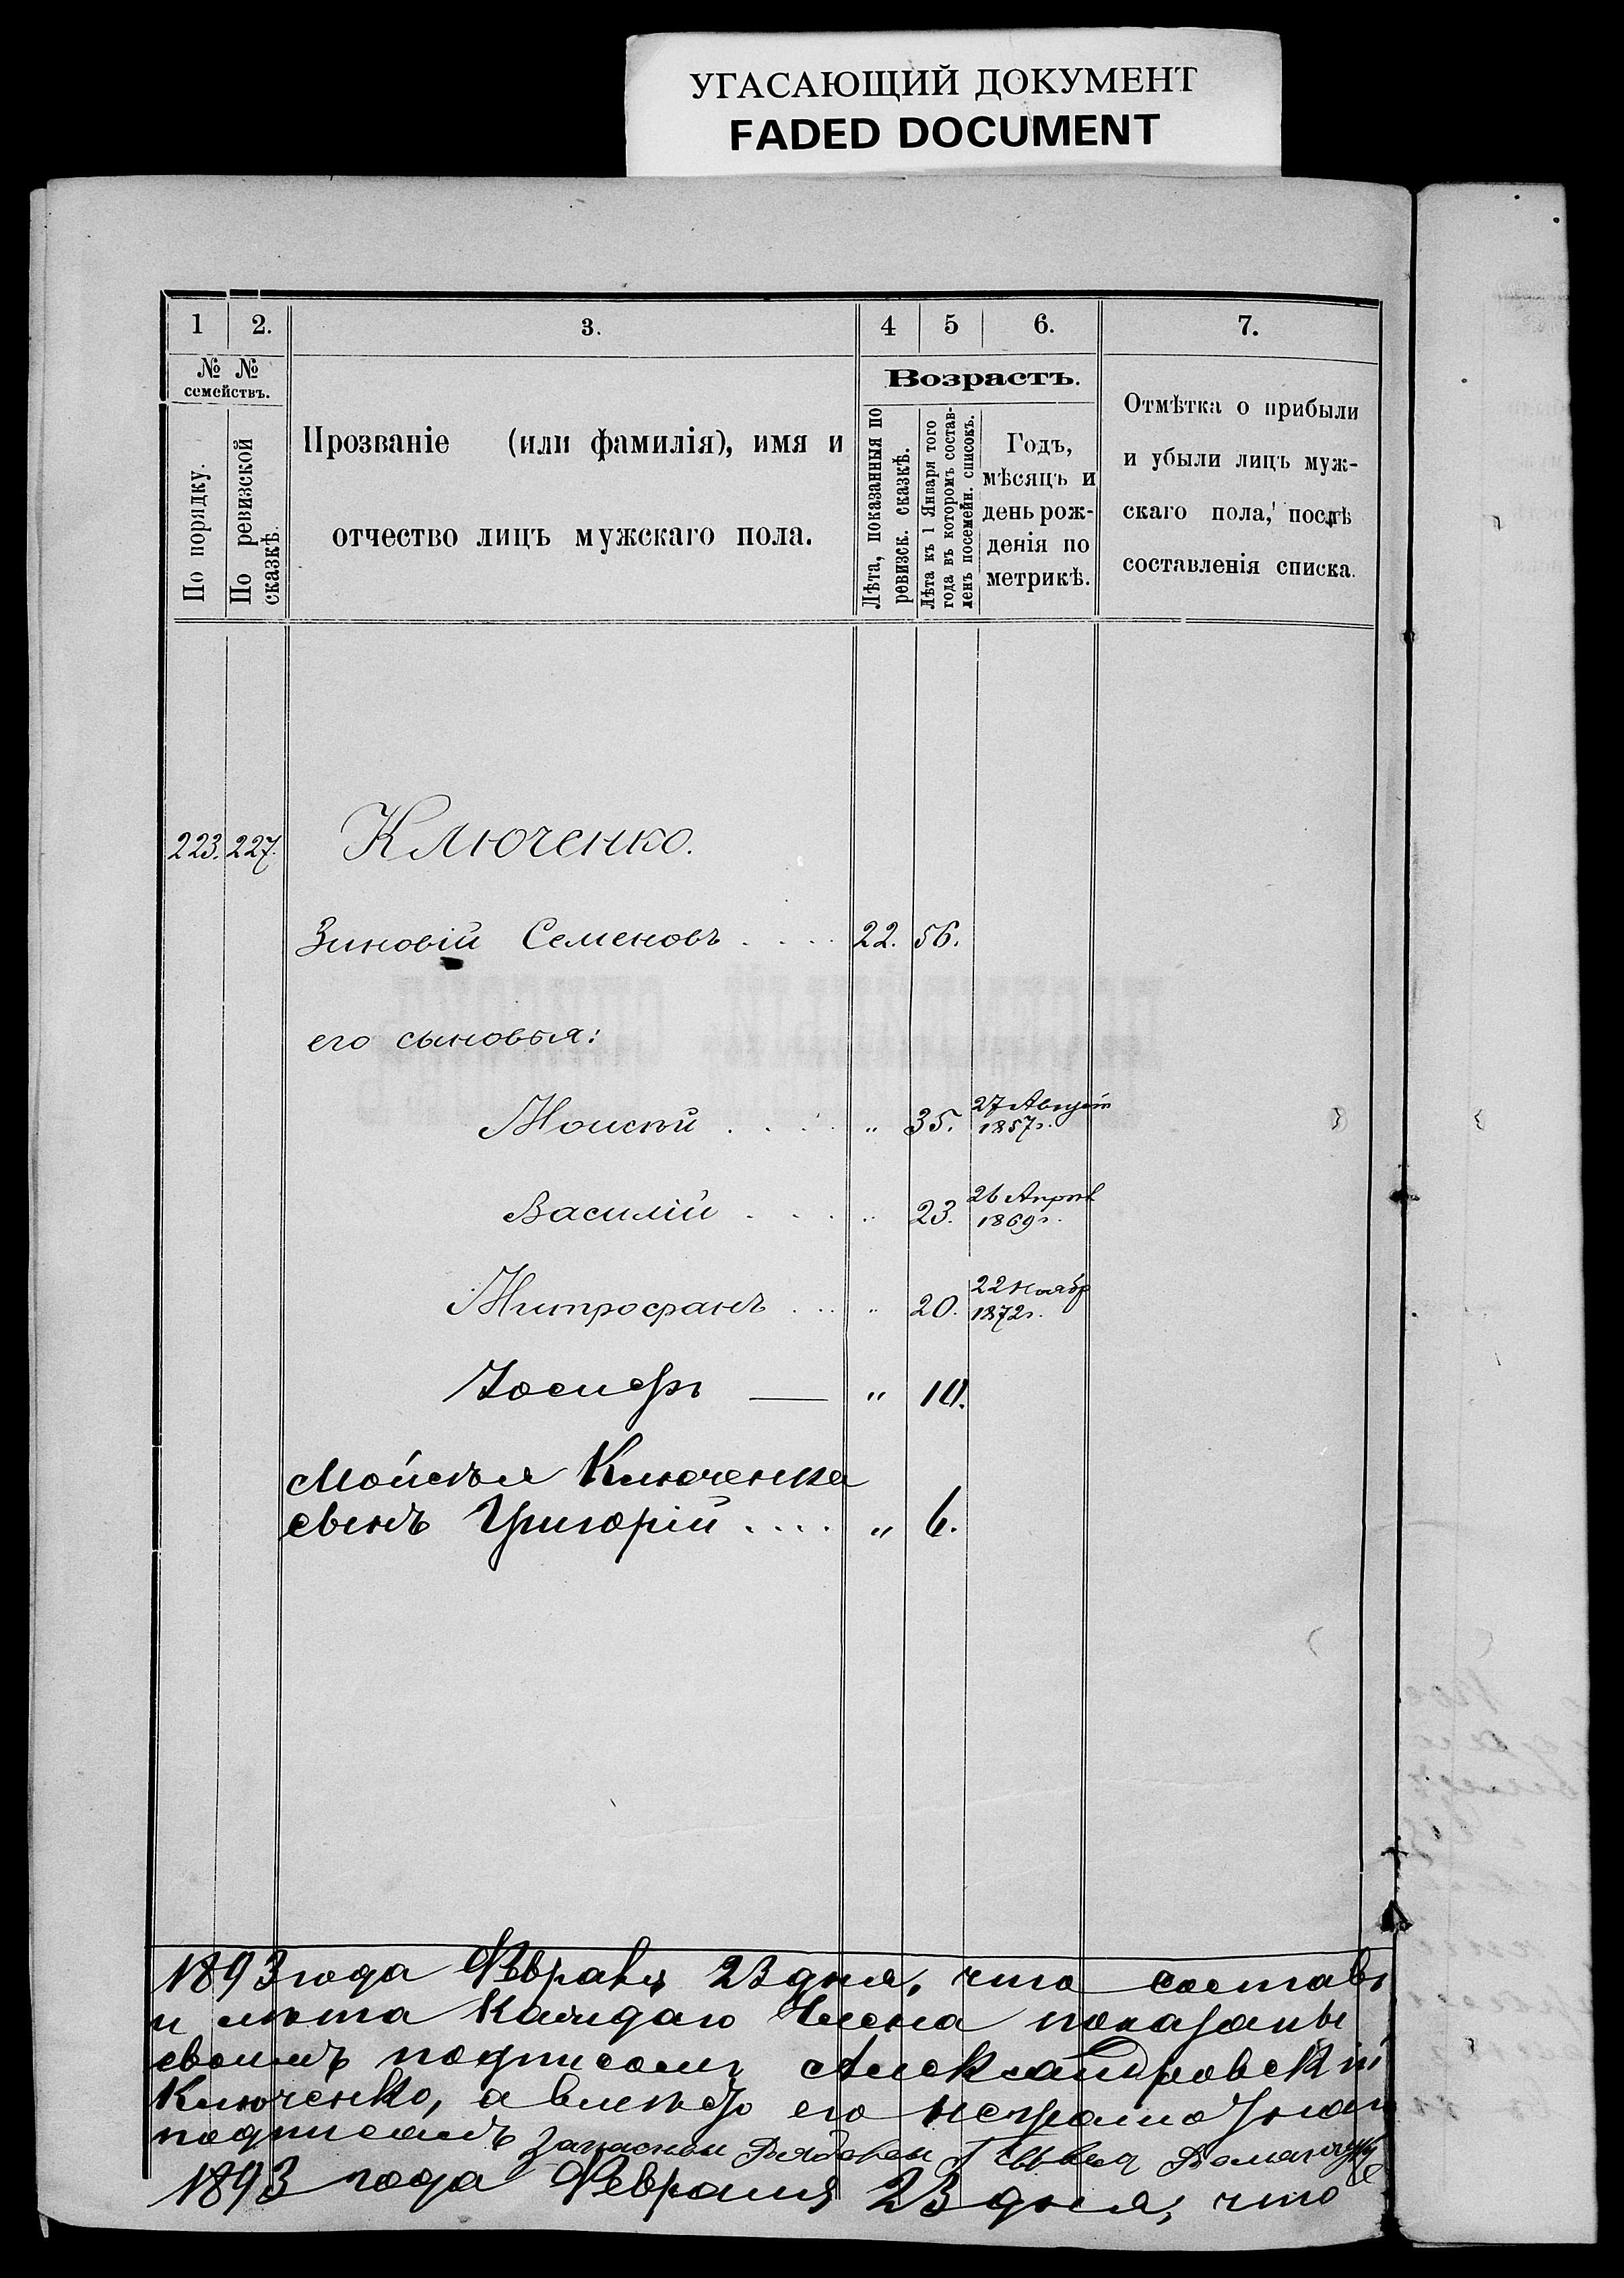 УГАСАЮЩИЙ ДОКУМЕНТ
FADED DOCUMENT
1 2. 3. 4 5 6. 7.
№ № семействъ.
По порядку.
По ревизской сказкѣ.
Прозваніе (или фамилія), имя и
отчество лицъ мужскаго пола.
Возрастъ.
Лѣта, показанныя по ревизск. сказкѣ.
Лѣта къ 1 Января того года въ которомъ составленъ посемейн. списокъ.
Годъ,
мѣсяцъ и
день рож-
денія по
метрикѣ.
Отмѣтка о прибыли
и убыли лицъ муж-
скаго пола, послѣ
составленія списка.
223. 227. Ключенко.
Зиновій Семеновъ . . . . 22. 56.
его сыновья:
Моисѣй . . . . " 35. 27 Августа 1857 г.
Василій . . . . " 23. 26 Апрѣл 1869 г.
Митрофанъ . . . " 20. 22 Ноябр 1872 г.
Іосифъ — " 10.
Мойсѣя Ключенка
сынъ Григорій . . . . " 6.
1893 года 23 дня, что составъ
и лѣта каждаго члена показаны
своимъ подписомъ
Ключенко, а его неграмотнаго
подписалъ запасный
1893 года Февраля 23 дня, что